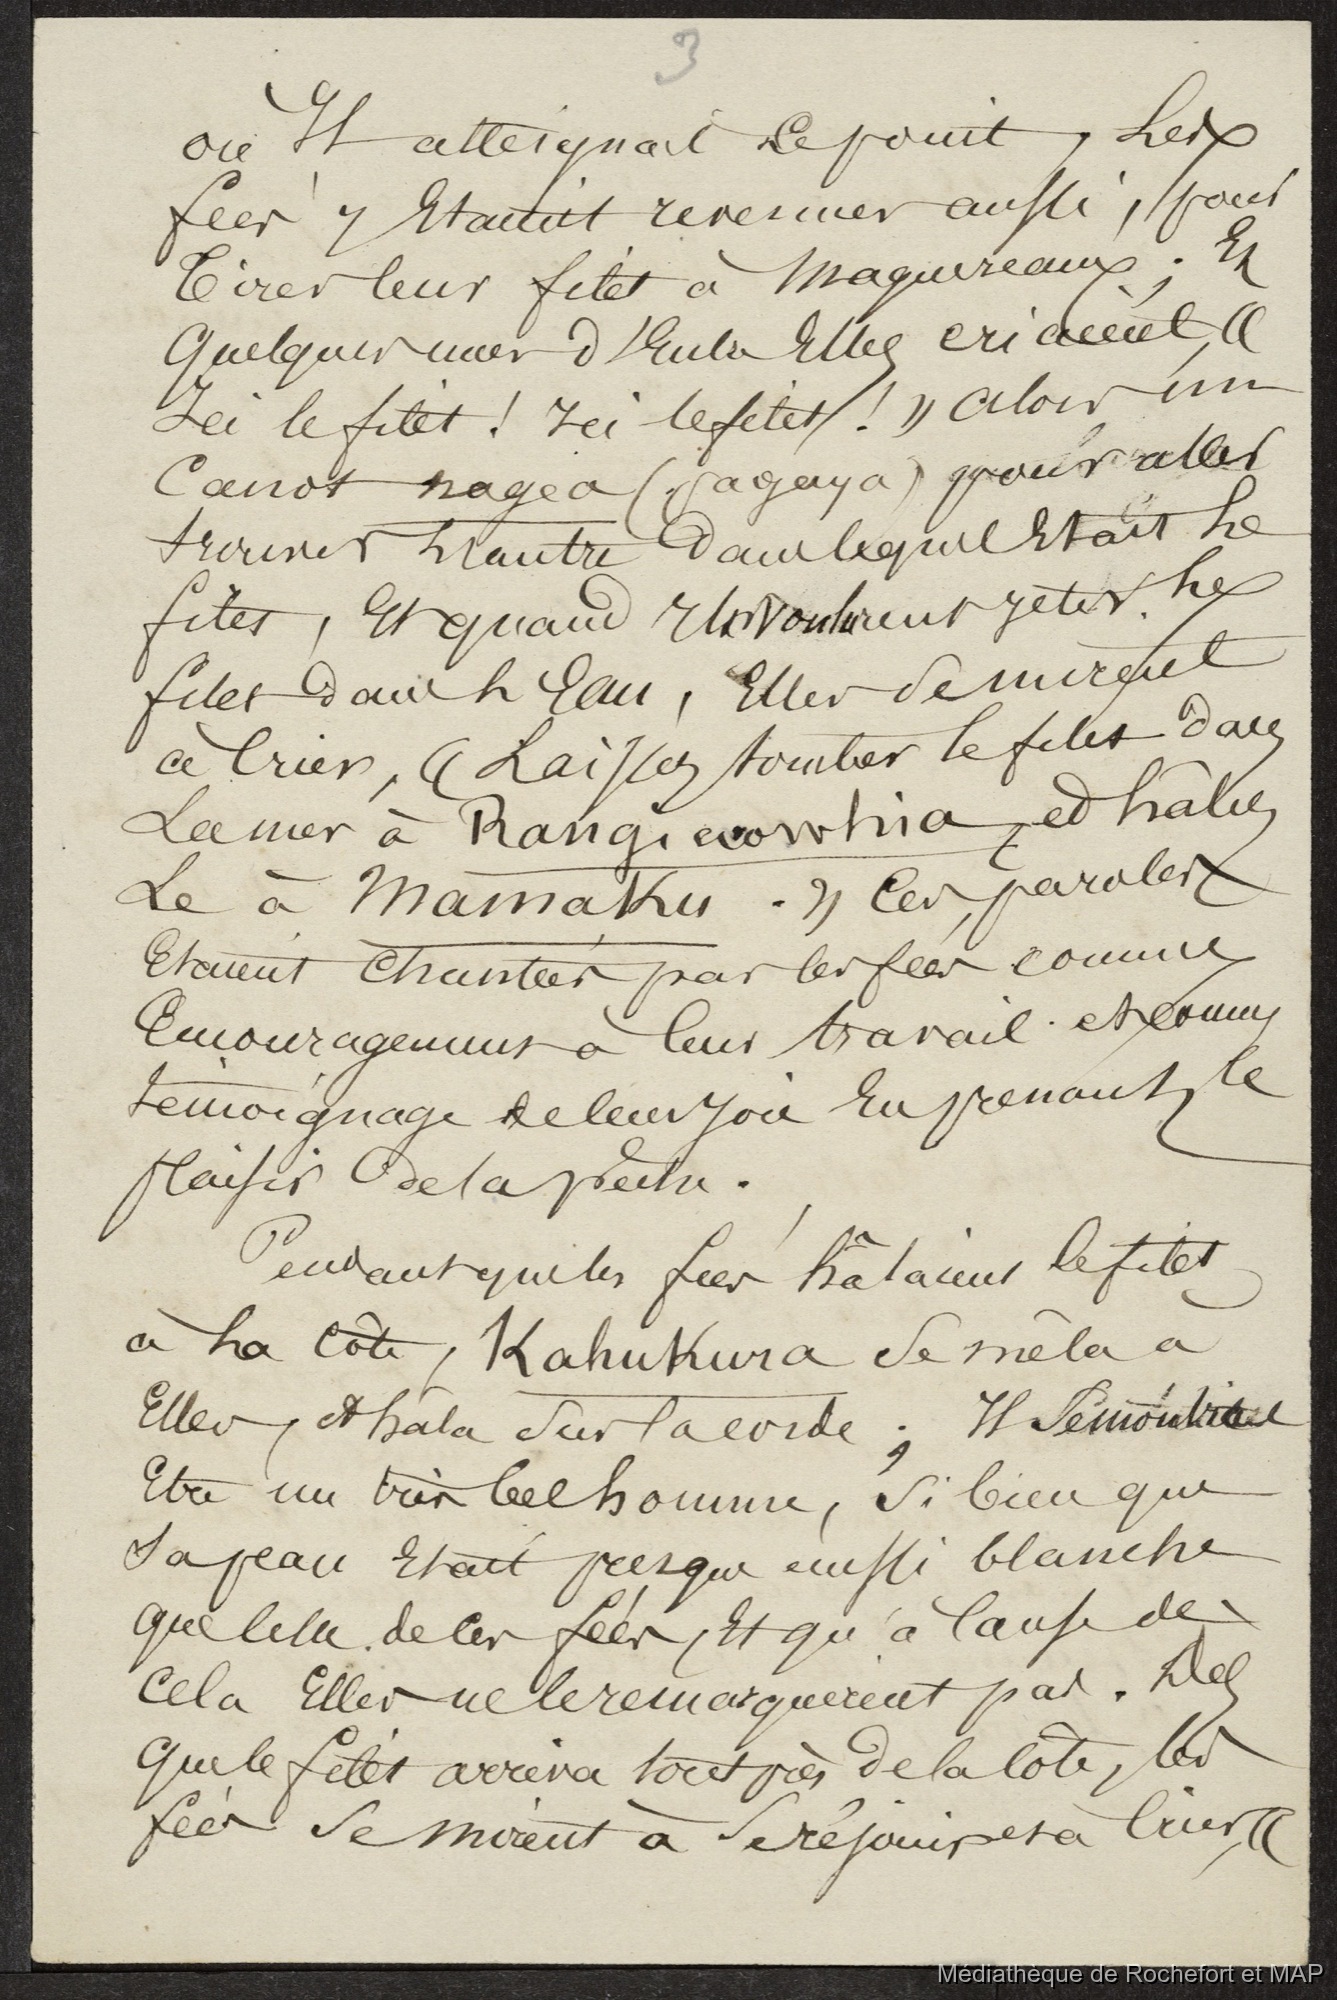 3
où Il atteignait ce point, Les
fées y Etaient revenues aussi, pour
tirer leur filet à Maquereaux; Et
Quelques unes d'Entre Elles criaient, «
Ici le filet! Ici le filet! » alors un
Canot nagea (pagaya) pour aller
trouver L'autre dans lequel Etait Le
filet, Et quand Ils voulurent jeter Le
filet dans L'Eau, Elles se mirent
à Crier, « Laissez tomber le filet dans
La mer à Rangiaowhia, et hâlez
Le à Mamaku. » Ces paroles
Etaient Chantées par les fées comme
Encouragement à leur travail et comme
témoignage de leur joie En prenant le
plaisir de la pêche.
Pendant que les fées hâlaient le filet
à La Côte, Kahukura se mêla à
Elles, et hâla sur la corde; Il Se montrait
Etre un très bel homme, si bien que
sa peau Etait presque aussi blanche
que celle de ces fées, Et qu'à Cause de
cela Elles ne le remarquèrent pas. Dès
que le filet arriva tout près de la Côte, les
fées se mirent à se réjouir et à Crier, «
Médiathèque de Rochefort et MAP